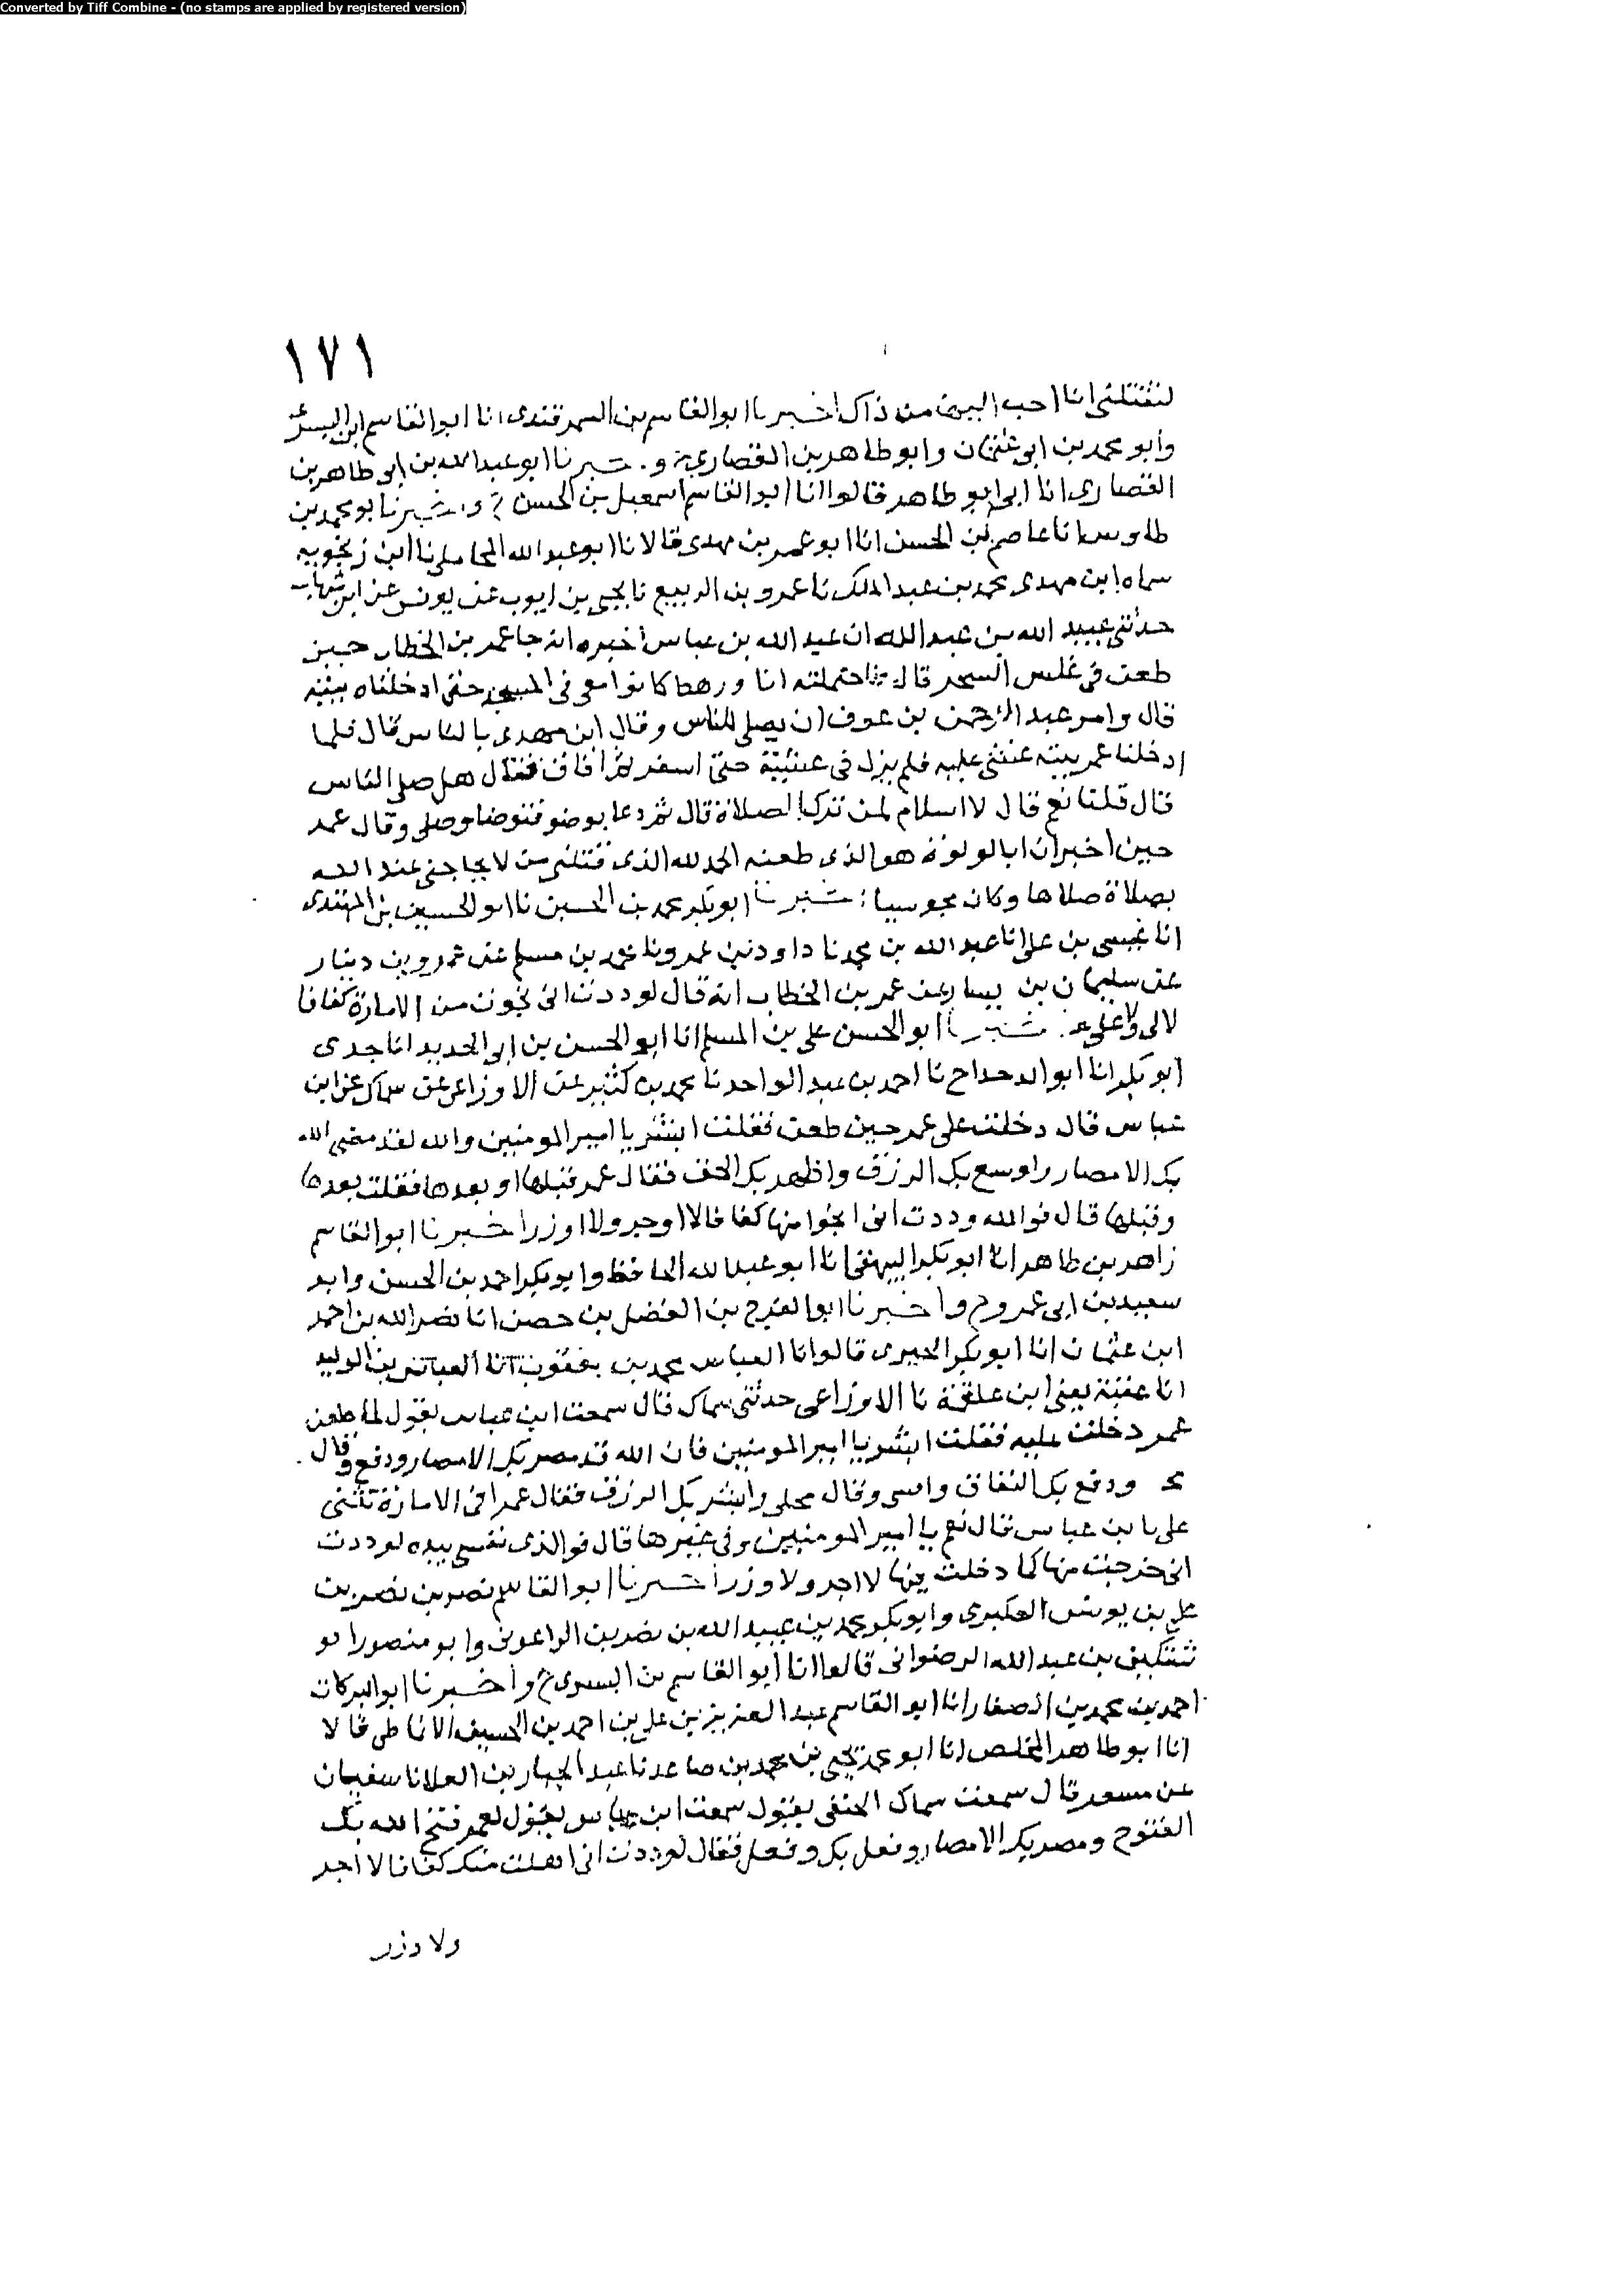 Converted by Tiff Combine - (no stamps are applied by registered version)
١٧١
احب اليهم من ذاك اخبرنا ابو القاسم بن السمرقندى انا ابو القاسم ابن
وابو محمد بن ابو عثمان وابو طاهر بن القصارى و خبرنا ابو عبد الله بن ابو طاهر بن
القصارى انا ابى ابو طاهر قالوا انا ابو القاسم اسمعيل بن الحسن ح و خبرنا بو محمد بن
طاوس انا عاصم بن الحسن انا ابو عمر بن مهدى قالا نا ابو عبد الله المحاملى نا ابن زنجويه
سماه ابن مهدى محمد بن عبد الملك نا عمرو بن الربيع نا يحيى بن ايوب عن يونس عن ابن شهاب
حدثنى عبيد الله بن عبد الله ان عبد الله بن عباس اخبره انه جا عمر بن الخطاب حين
طعن فى غلس السحر قال فاحتملته انا ورهط كانوا معى فى المسجد حتى ادخلناه بيته
قال وامر عبد الرحمن بن عوف ان يصلى للناس وقال ابن مهدى بالناس قال فلما
ادخلنا عمر بيته غشى عليه فلم يزل فى غشيته حتى اسفر ثم افاق فقال هل صلى الناس
قال قلنا نعم قال لا اسلام لمن ترك الصلاة قال ثم دعا بوضو فتوضا وصلى وقال عمر
حين اخبر ان ابا لولوة هو الذى طعنه الحمد لله الذى قتلنى من لا يحاجنى عند الله
بصلاة صلاها وكان مجوسيا خبرنا ابو بكر محمد بن الحسين نا ابو الحسين بن المهتدى
انا عيسى بن على انا عبد الله بن محمد نا داود بن عمرو نا محمد بن مسلم عن عمرو بن دينار
عن سليمان بن يسار عن عمر بن الخطاب انه قال لوددت انى نجوت من الامارة كفافا
لا لى ولا على خبرنا ابو الحسن على بن المسلم انا ابو الحسن بن ابى الحديد انا جدى
ابو بكر انا ابو الدحداح نا احمد بن عبد الواحد نا محمد بن كثير عن الاوزاعى عن سماك عن ابن
عباس قال دخلت على عمر حين طعن فقلت ابشر يا امير المومنين والله لقد مصر الله
بك الامصار واوسع بك الرزق واظهر بك الحق فقال عمر قبلها او بعدها فقلت بعدها
وقبلها قال فوالله وددت انى انجوا منها كفافا لا اوجر ولا اوزر اخبرنا ابو القاسم
زاهر بن طاهر انا ابو بكر البيهقى انا ابو عبد الله الحافظ وابو بكر احمد بن الحسن وابو
سعيد بن ابى عمرو ح واخبرنا ابو الفرج بن الفضل بن حصن انا نصر الله بن احمد
ابن عثمان انا ابو بكر الحيرى قالوا نا العباس محمد بن يعقوب انا العباس بن الوليد
انا عقبة يعنى ابن علقمة نا الاوزاعى حدثنى سماك قال سمعت ابن عباس يقول لما طعن
عمر دخلت عليه فقلت ابشر يا امير المومنين فان الله قد مصر بك الامصار ودفع وقال
ودفع بك النفاق وقال وابشر بك الرزق فقال عمر افى الامارة تثنى
على يا بن عباس قال نعم يا امير المومنين وفى غيرها قال فوالذى نفسى بيده لوددت
انى خرجت منها كما دخلت فيها لا اجر ولا وزر اخبرنا ابو القاسم نصر بن نصر بن
على بن يونس العكبرى وابو بكر محمد بن عبيد الله بن نصر بن الزاعونى وابو منصور
بن عبد الله الرضوانى قالوا انا ابو القاسم بن البسرى ح واخبرنا ابو البركات
احمد بن محمد بن الصفار انا ابو القاسم عبد العزيز بن على بن احمد بن الحسين الانماطى قالا
انا ابو طاهر المخلص انا ابو محمد يحيى بن محمد بن صاعد نا عبد الجبار بن العلا نا سفيان
عن مسعر قال سمعت سماك الحنفى يقول سمعت ابن عباس يقول لعمر فتح الله بك
الفتوح ومصر بك الامصار وفعل بك وفعل فقال لوددت انى كفافا لا اجر
ولا وزر